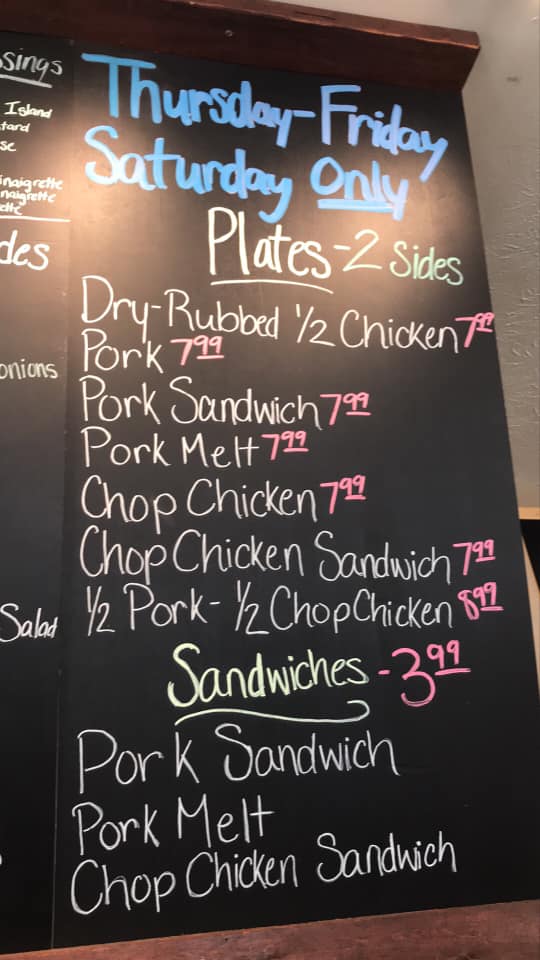 Island
des
onions
Salad
Thursday-Friday
Saturday Only
Plates-2 Sides
Dry-Rubbed 1/2 Chicken 7.99
Pork 7.99
Pork Sandwich 7.99
Pork Melt 7.99
Chop Chicken 7.99
Chop Chicken Sandwich 7.99
1/2 Pork- 1/2 Chop Chicken 8.99
Sandwiches -3.99
Pork Sandwich
Pork Melt
Chop Chicken Sandwich